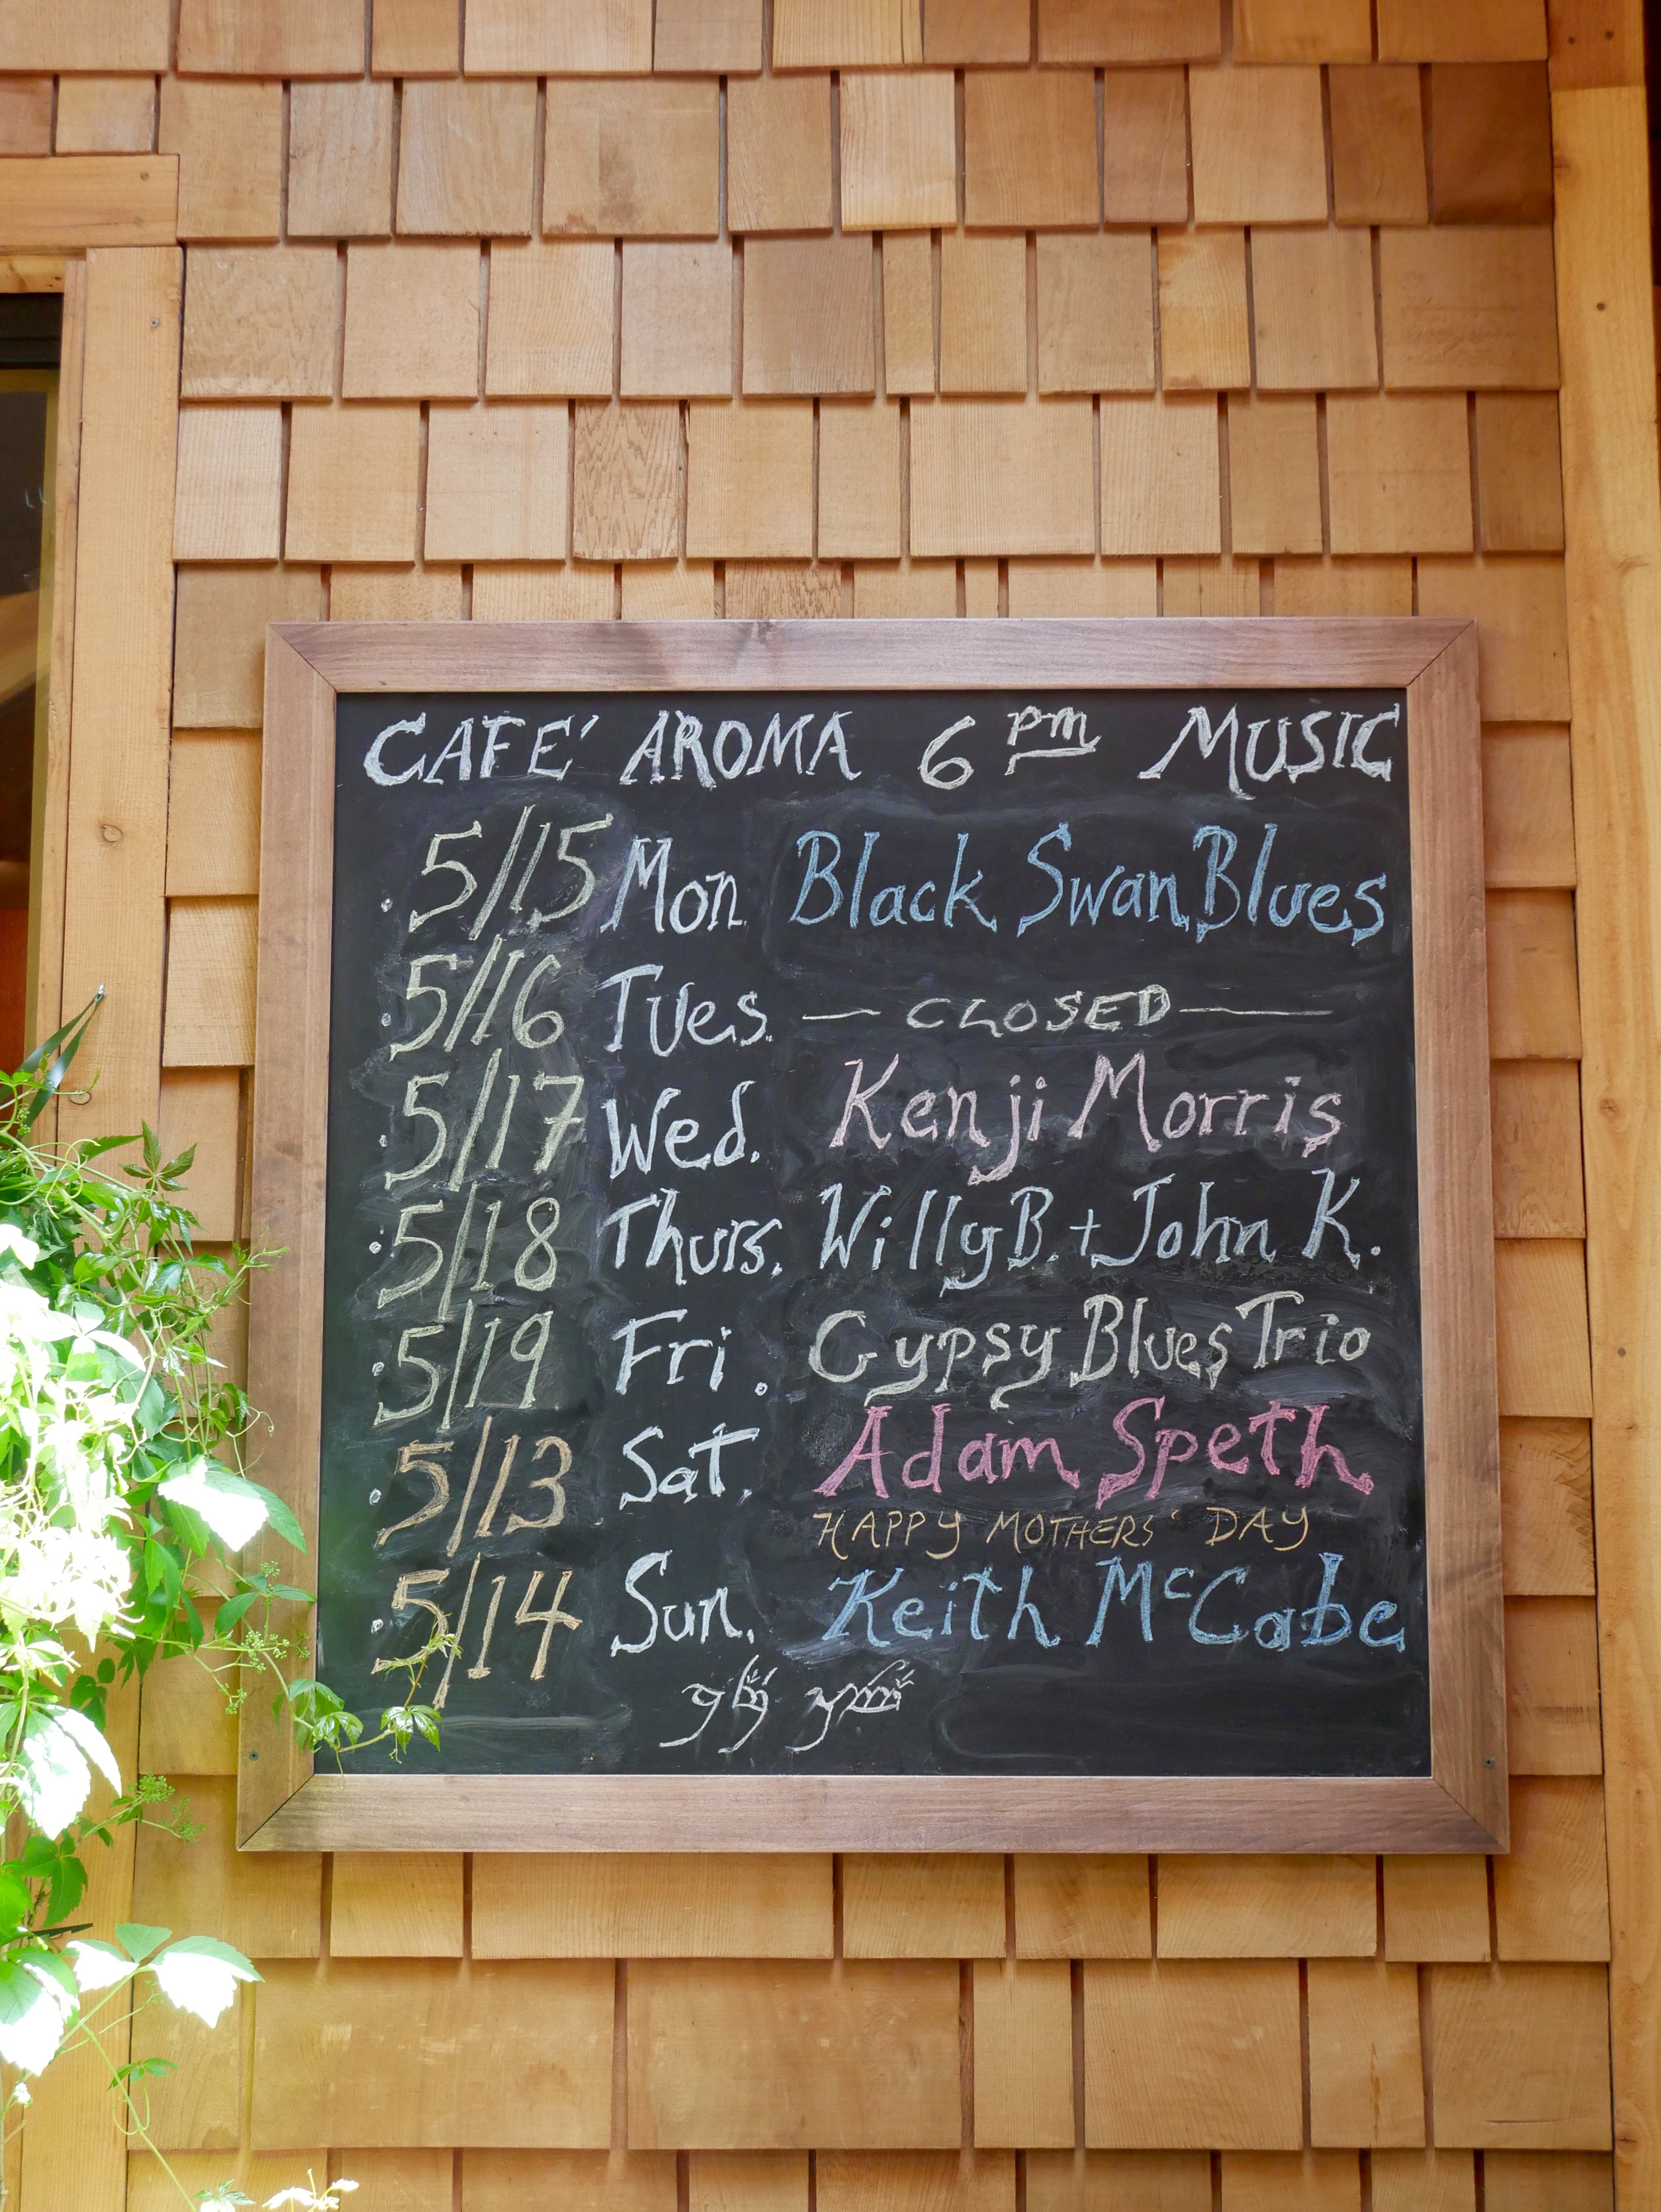 CAFE´ AROMA 6 pm MUSIC
. 5/15 Mon. Black Swan Blues
: 5/16 Tues. — CLOSED —
: 5/17 Wed. Kenji Morris
: 5/18 Thurs. Willy B. + John K.
: 5/19 Fri. Gypsy Blues Trio
: 5/13 Sat. Adam Speth
HAPPY MOTHERS' DAY
: 5/14 Sun. Keith McCabe